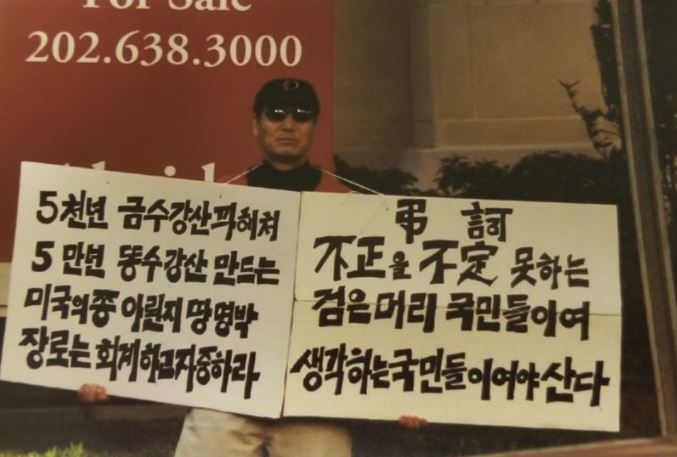 For Sale
202.638.3000
5천년 금수강산파헤쳐
5만년 똥수강산 만드는
미국의종 아륀지 땅명박
장로는 회계하고자중하라
弔 訶
不正을 不定 못하는
검은머리 국민들이여
생각하는국민들이여야산다